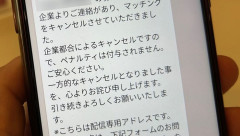 企業よりご連絡があり、マッチング
をキャンセルさせていただきまし
た。
企業都合によるキャンセルですの
で、ペナルティは付与されません。
ご安心ください。
一方的なキャンセルとなりました事
を、心よりお詫び申し上げます。
引き続きよろしくお願いいたしま
す。
*こちらは配信専用アドレスです。
下記フォームのお問